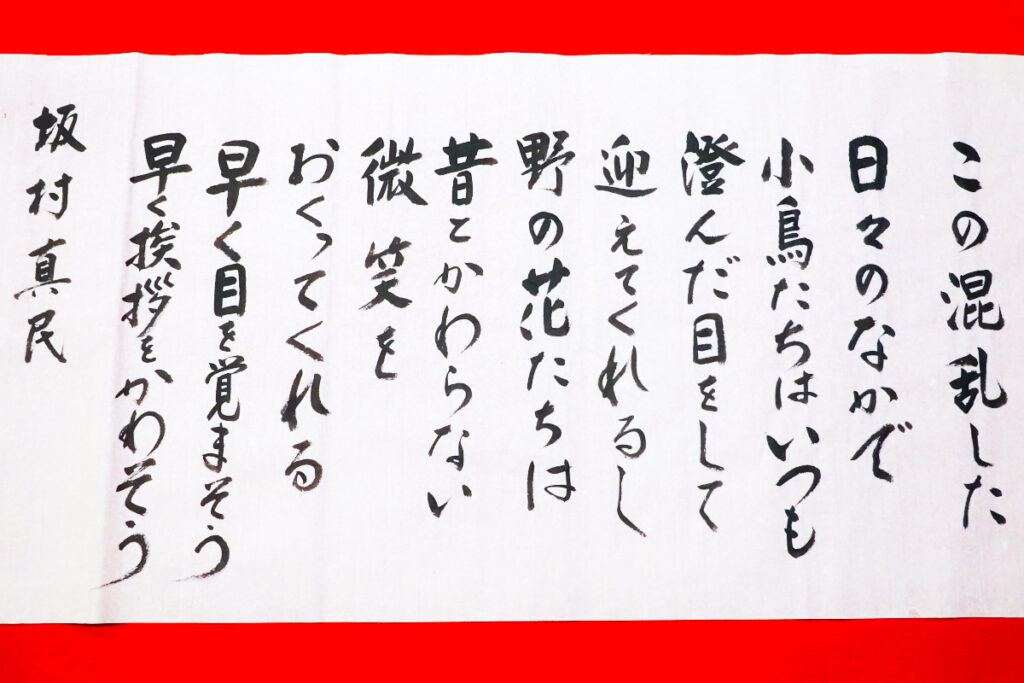 この混乱した
日々のなかで
小鳥たちはいつも
澄んだ目をして
迎えてくれるし
野の花たちは
昔とかわらない
微笑を
おくってくれる
早く目を覚まそう
早く挨拶をかわそう
坂村真民